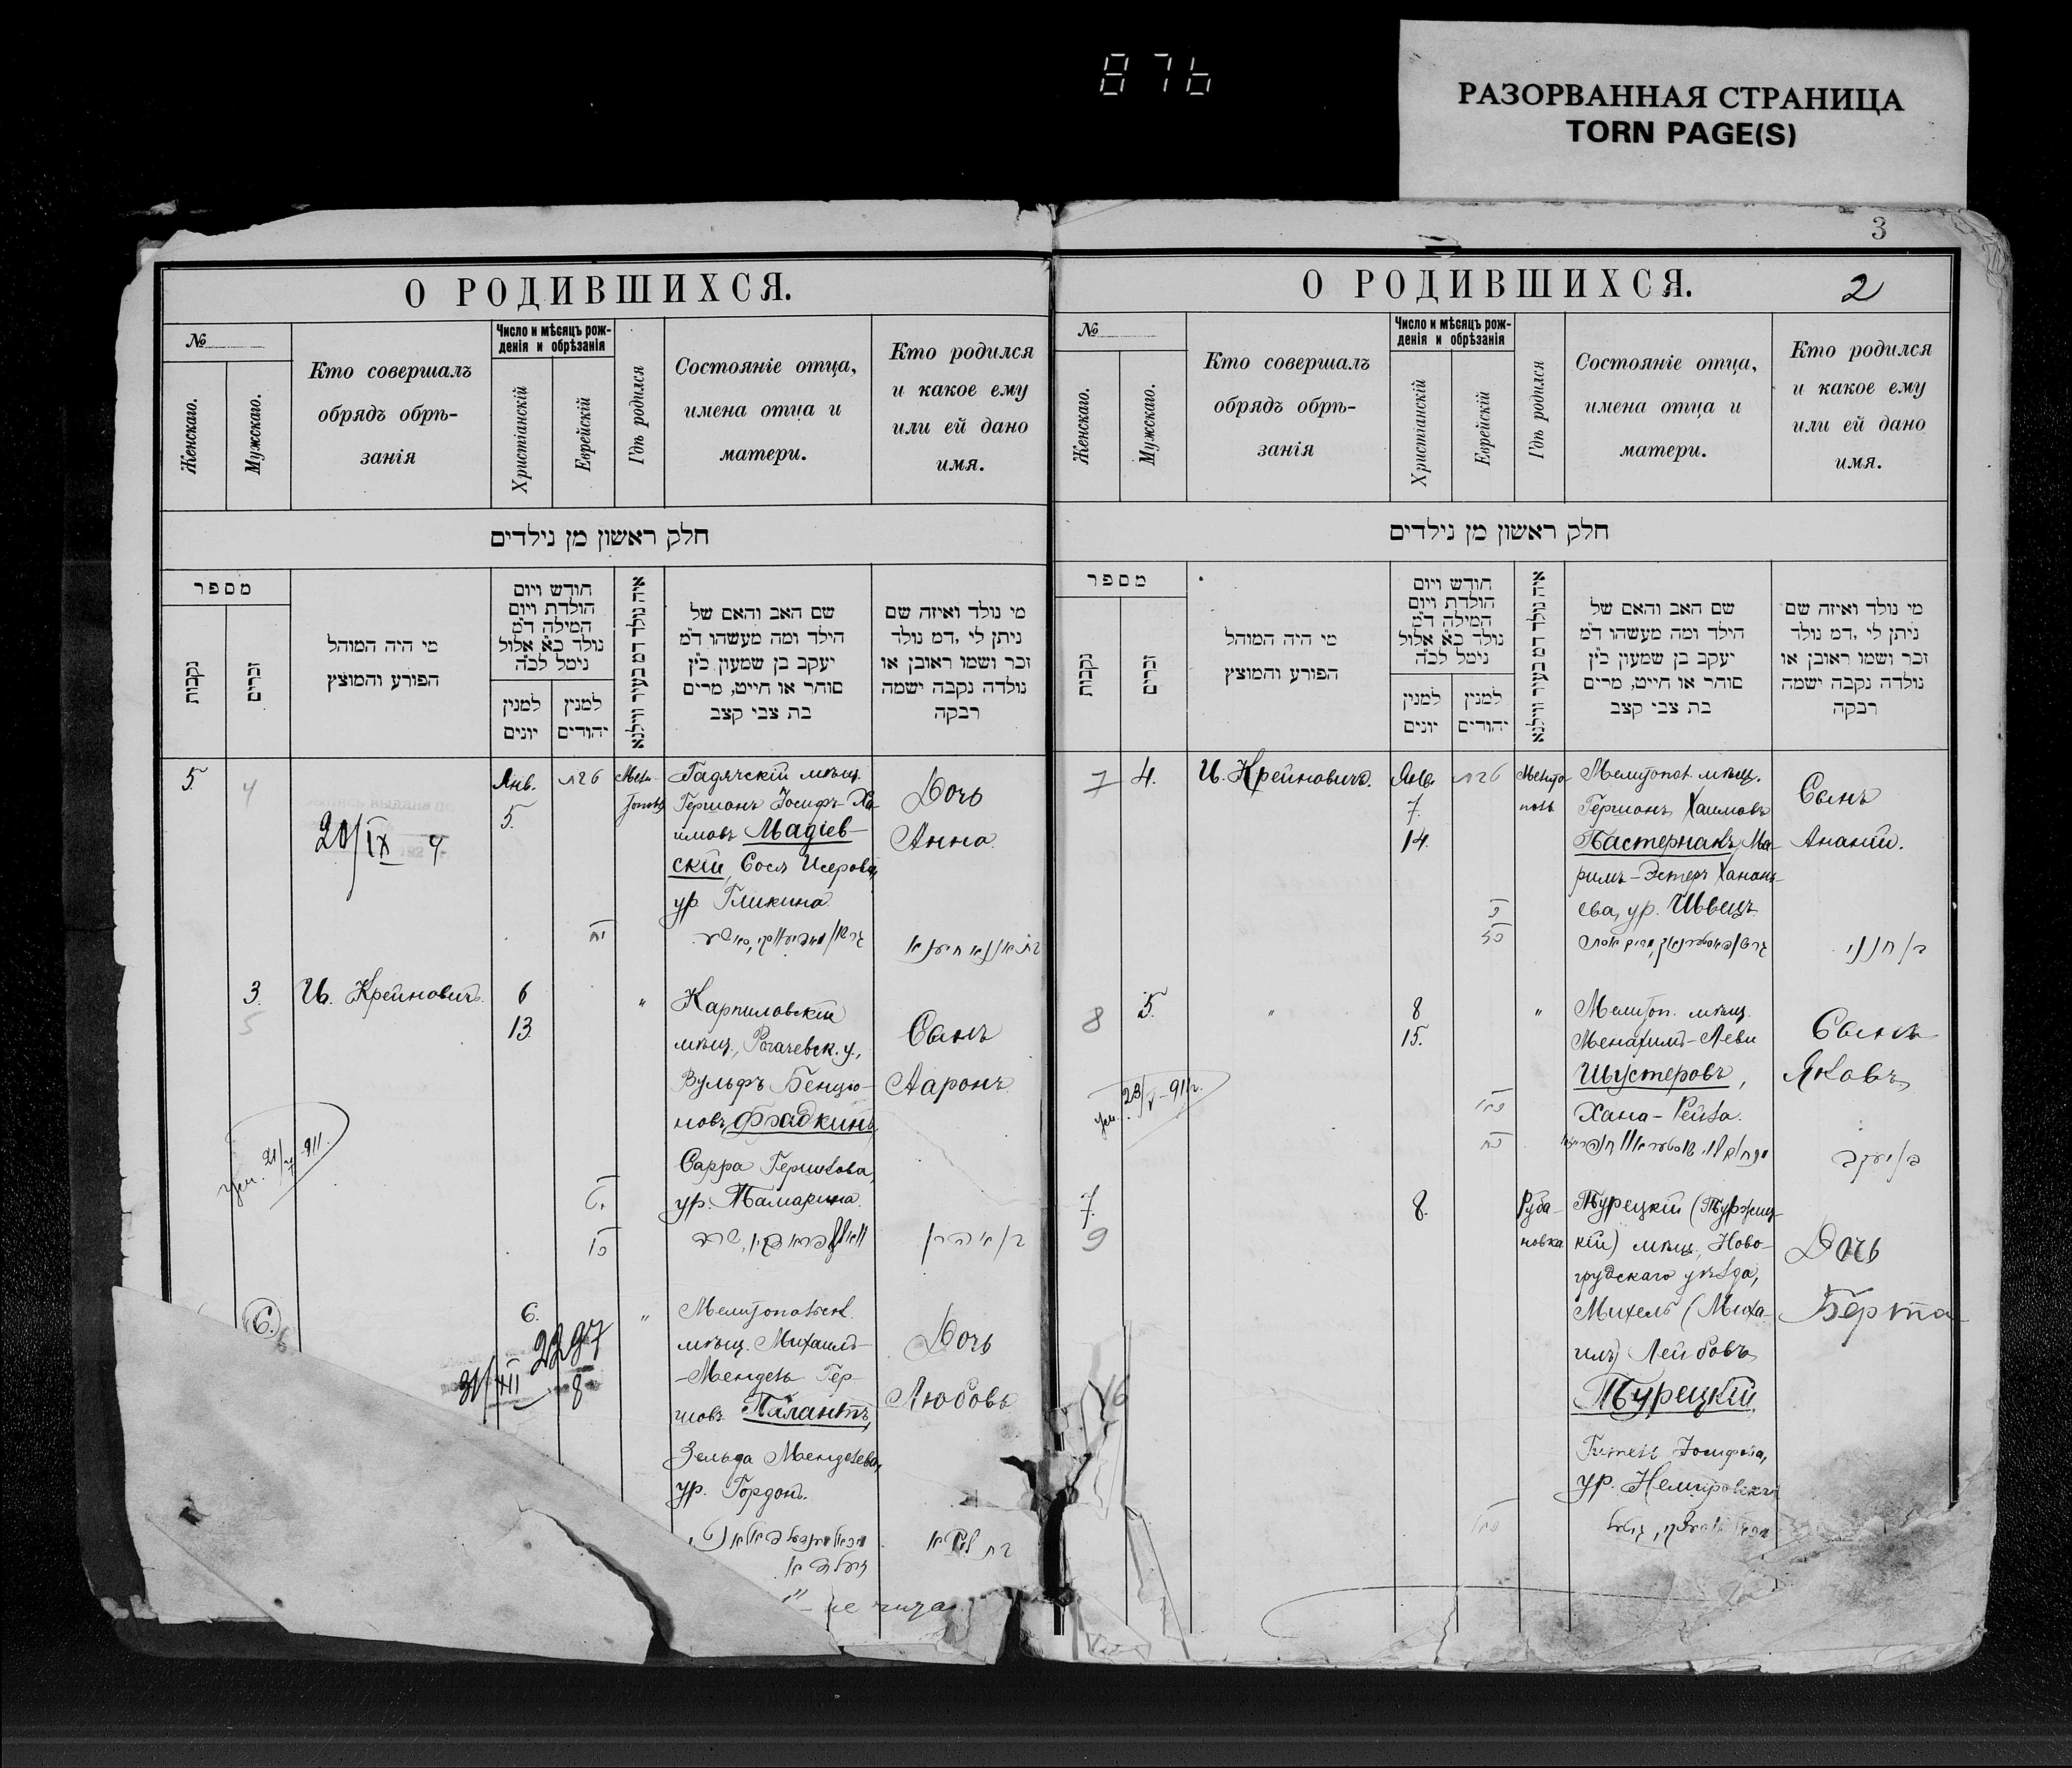 876
РАЗОРВАННАЯ СТРАНИЦА
TORN PAGE(S)
О РОДИВШИХСЯ.
№
Женскаго.
Мужскаго.
Кто совершалъ
обрядъ обрѣ-
занія
Число и мѣсяцъ рож-
денія и обрѣзанія
Христіанскій
Еврейскій
Гдѣ родился
Состояніе отца,
имена отца и
матери.
Кто родился
и какое ему
или ей дано
имя.
חלק ראשון מן נילדים
מספר
נקבות
זכרים
מי היה המוהל
הפורע והמוצץ
חודש ויום
הולדת ויום
המילה ד״מ
נולד כ״א אלול
נימל לכ״ה
למנין
יונים
למנין
יהודים
איה נולד דמ בעיר ווילנא
שם האב והאם של
הילד ומה מעשהו ד״מ
יעקב בן שמעון כ״ץ
סוחר או חייט, מרים
בת צבי קצב
מי נולד ואיזה שם
ניתן לי ,דמ נולד
זכר ושמו ראובן או
נולדה נקבה ישמה
רבקה
5.
4
20/IX
Янв.
5.
טבת
Мели-
тополь
Гадячскій мѣщ.
Гершонъ Іосифъ-Ха-
имовъ Мадіев-
скій, Сося Исерова,
ур. Гликина
Дочь
Анна
יח
3.
5
И. Крейновичъ.
6
13.
"
Карпиловскій
мѣщ., Рогачевск. у.,
Вульфъ Бенціо-
новъ Фрадкинъ,
Сарра Гершкова,
ур. Тамаркина
Сынъ
Ааронъ
ב/אהרן
6.
6
6.
2297
8
31/XII
"
Мелитопольск.
мѣщ. Михаилъ-
-Мендель Гер-
шовъ Палантъ,
Зельда Менделева,
ур. Гордонъ.
Дочь
Любовь
3
О РОДИВШИХСЯ.
2
№
Женскаго.
Мужскаго.
Кто совершалъ
обрядъ обрѣ-
занія
Число и мѣсяцъ рож-
денія и обрѣзанія
Христіанскій
Еврейскій
Гдѣ родился
Состояніе отца,
имена отца и
матери.
Кто родился
и какое ему
или ей дано
имя.
חלק ראשון מן נילדים
מספר
נקבות
זכרים
מי היה המוהל
הפורע והמוצץ
חודש ויום
הולדת ויום
המילה ד״מ
נולד כ״א אלול
נימל לכ״ה
למנין
יונים
למנין
יהודים
איה נולד דמ בעיר ווילנא
שם האב והאם של
הילד ומה מעשהו ד״מ
יעקב בן שמעון כ״ץ
סוחר או חייט, מרים
בת צבי קצב
מי נולד ואיזה שם
ניתן לי ,דמ נולד
זכר ושמו ראובן או
נולדה נקבה ישמה
רבקה
7
4.
И. Крейновичъ.
Янв.
7.
14.
טבת
Мелито-
поль
Мелитопол. мѣщ.
Гершонъ Хаимовъ
Пастернакъ, Ма-
римъ-Эстеръ Ханань-
ева, ур. Швецъ.
Сынъ
Ананій.
ב/ חנני
8
5.
"
8
15.
"
Мелитоп. мѣщ.
Менахимъ-Леви
Шустеровъ,
Хана-Рейза.
Сынъ
Яковъ
ב/יעקב
23/V-911г.
7.
9
8.
Руба-
новка
Турецкій (Туржец-
кій) мѣщ. Ново-
грудскаго уѣзда,
Михель (Миха-
илъ) Лейбовъ
Турецкій,
Гитель Іосифова,
ур. Немировская
Дочь
Берта